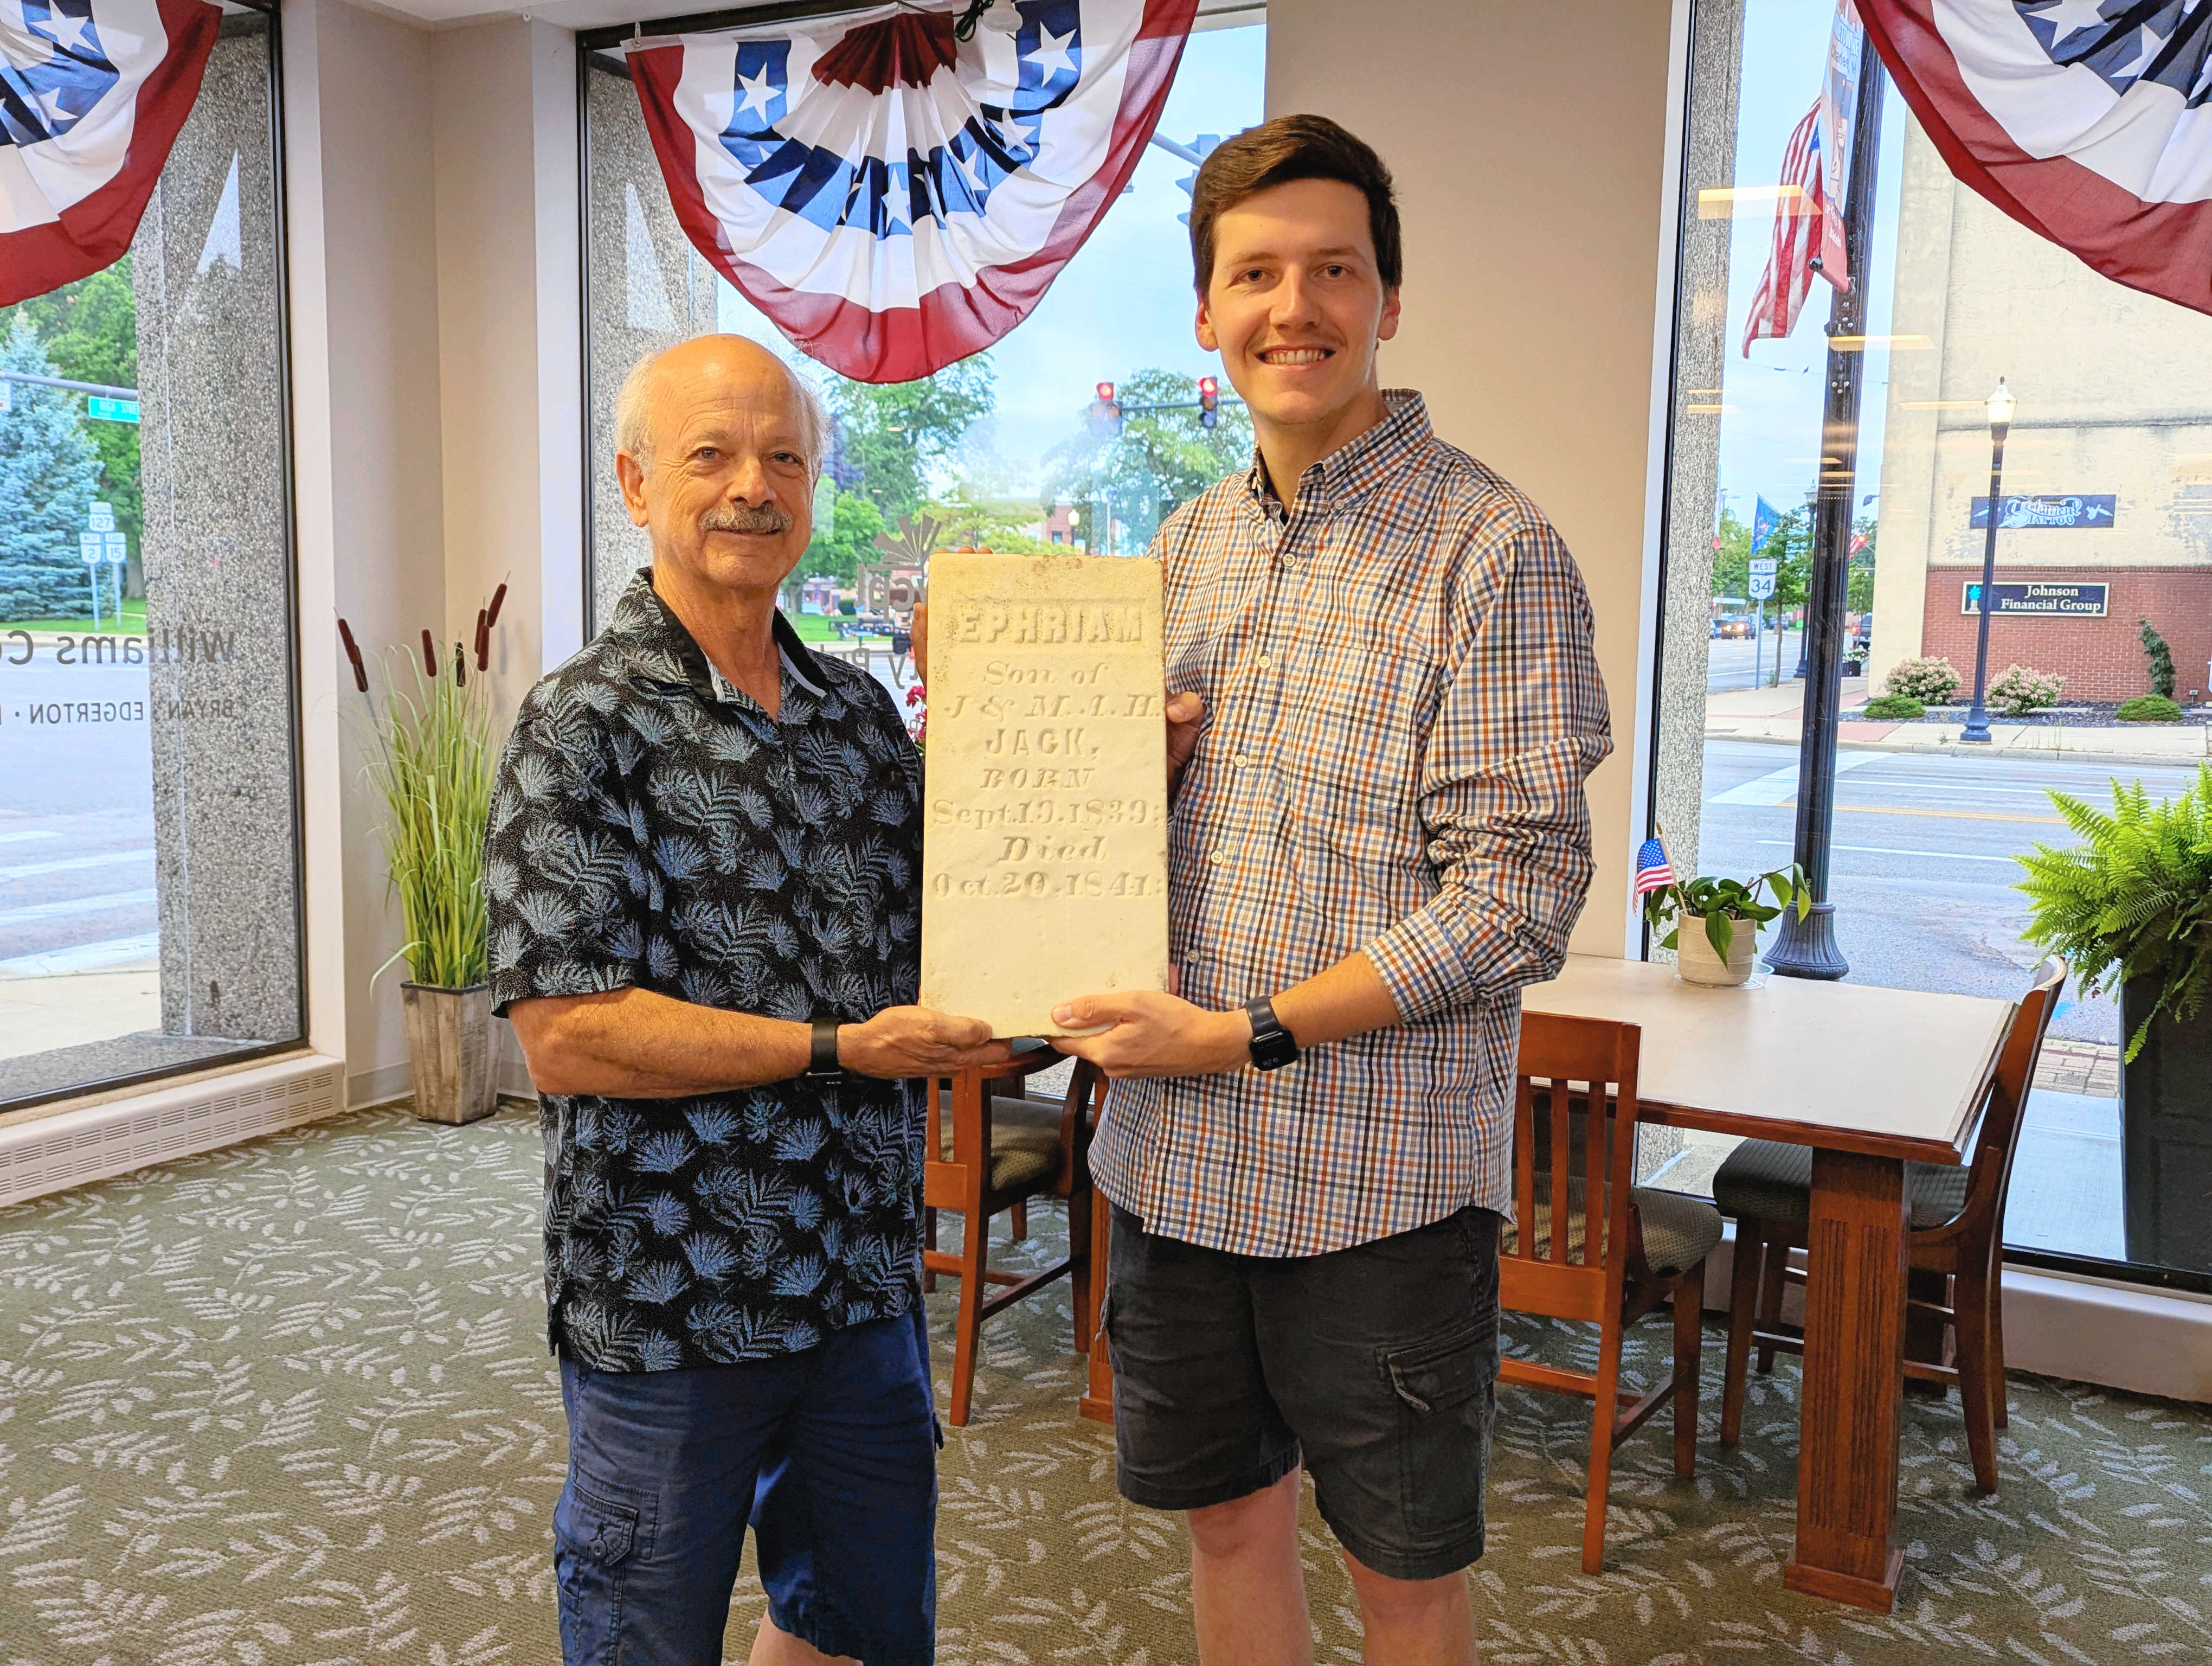 EPHRIAM
Son of
J & M.A.H.
JACK,
BORN
Sept.19.1839:
Died
Oct.20.1841:
HIGH STREE
127
WEST
2
EAST
15
Williams Co
BRYAN · EDGERTON ·
WEST
34
Testament
TATTOO
Johnson
Financial Group